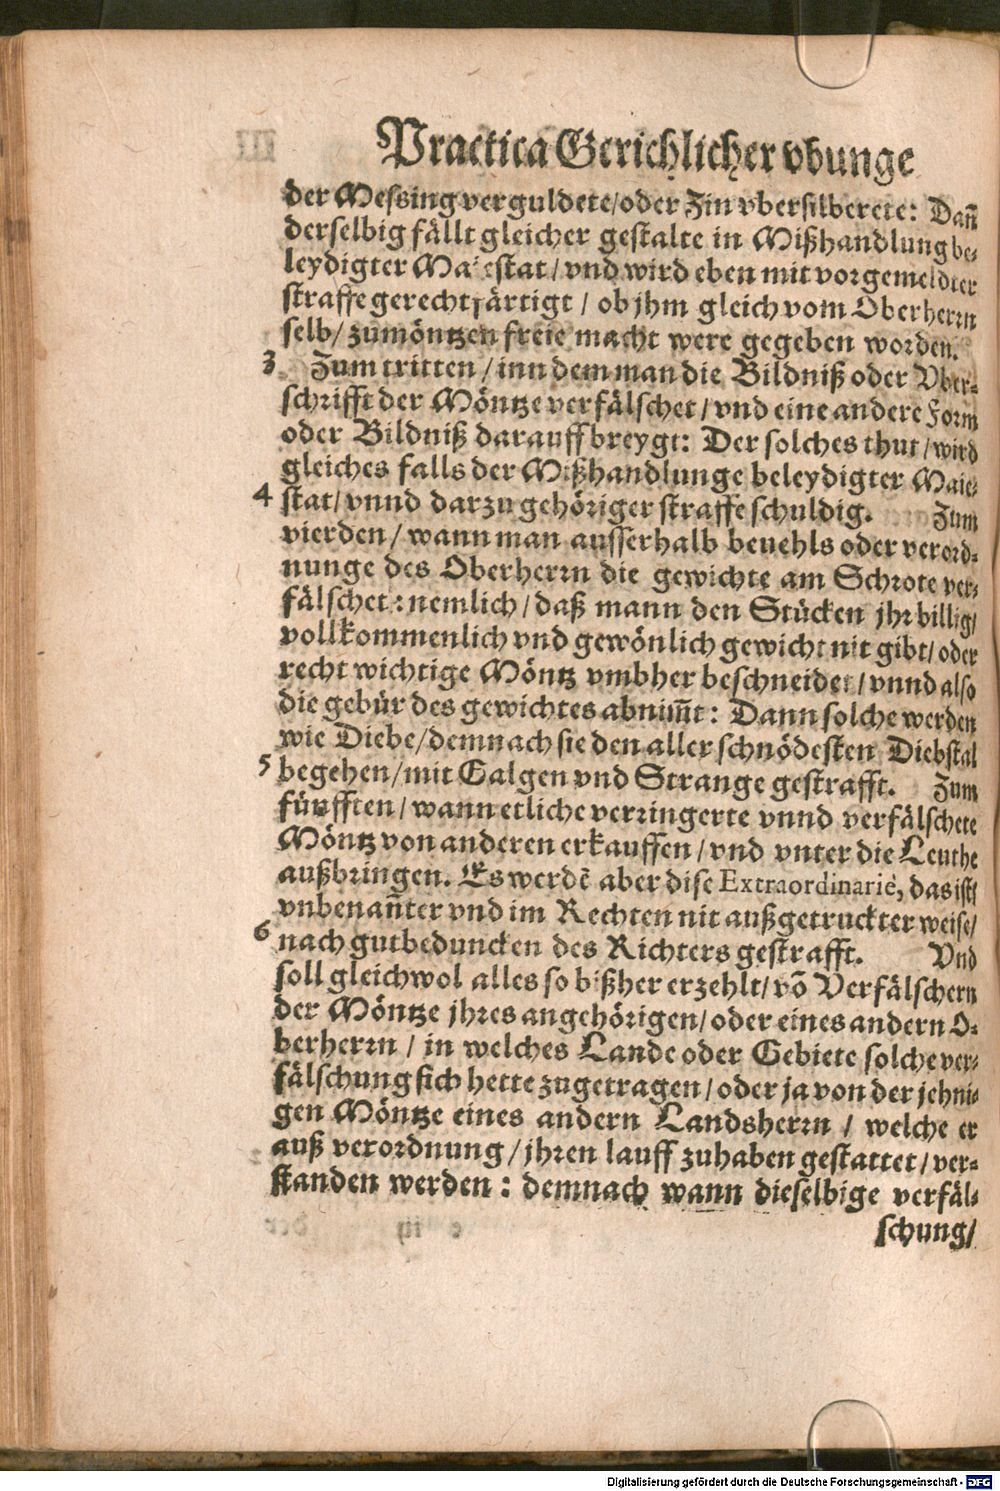 Practica Gerichlicher vbunge
der Messing verguldete/oder Zin vbersilberete: Dañ
derselbig fällt gleicher gestalte in Mißhandlung be-
leydigter Maiestat/vnd wird eben mit vorgemeldter
straffe gerechtfärtigt/ ob jhm gleich vom Oberherrn
selb/ zumöntzen freie macht were gegeben worden.
3 Zum tritten/inn dem man die Bildniß oder Vber-
schrifft der Möntze verfälschet/vnd eine andere Form
oder Bildniß darauff breygt: Der solches thut/wird
gleiches falls der Mißhandlunge beleydigter Maie-
4 stat/vnnd darzu gehöriger straffe schuldig. Zum
vierden/wann man ausserhalb beuehls oder verord-
nunge des Oberherrn die gewichte am Schrote ver-
fälschet: nemlich/daß mann den Stücken jhr billig/
vollkommenlich vnd gewönlich gewicht nit gibt/oder
recht wichtige Möntz vmbher beschneidet/vnnd also
die gebür des gewichtes abnim̃t: Dann solche werden
wie Diebe/demnach sie den aller schnödesten Diebstal
5 begehen/mit Galgen vnd Strange gestrafft. Zum
fünfften/wann etliche verringerte vnnd verfälschete
Möntz von anderen erkauffen/vnd vnter die Leuthe
außbringen. Es werdẽ aber dise Extraordinariè, das ist/
vnbenañter vnd im Rechten nit außgetruckter weise/
6 nach gutbeduncken des Richters gestrafft. Vnd
soll gleichwol alles so bißher erzehlt/võ Verfälschern
der Möntze jhres angehörigen/oder eines andern O-
berherrn/in welches Lande oder Gebiete solche ver-
fälschung sich hette zugetragen/oder ja von der jehni-
gen Möntze eines andern Landsherrn/welche er
auß verordnung/jhren lauff zuhaben gestattet/ver-
standen werden: demnach wann dieselbige verfäl-
schung/
Digitalisierung gefördert durch die Deutsche Forschungsgemeinschaft - DFG